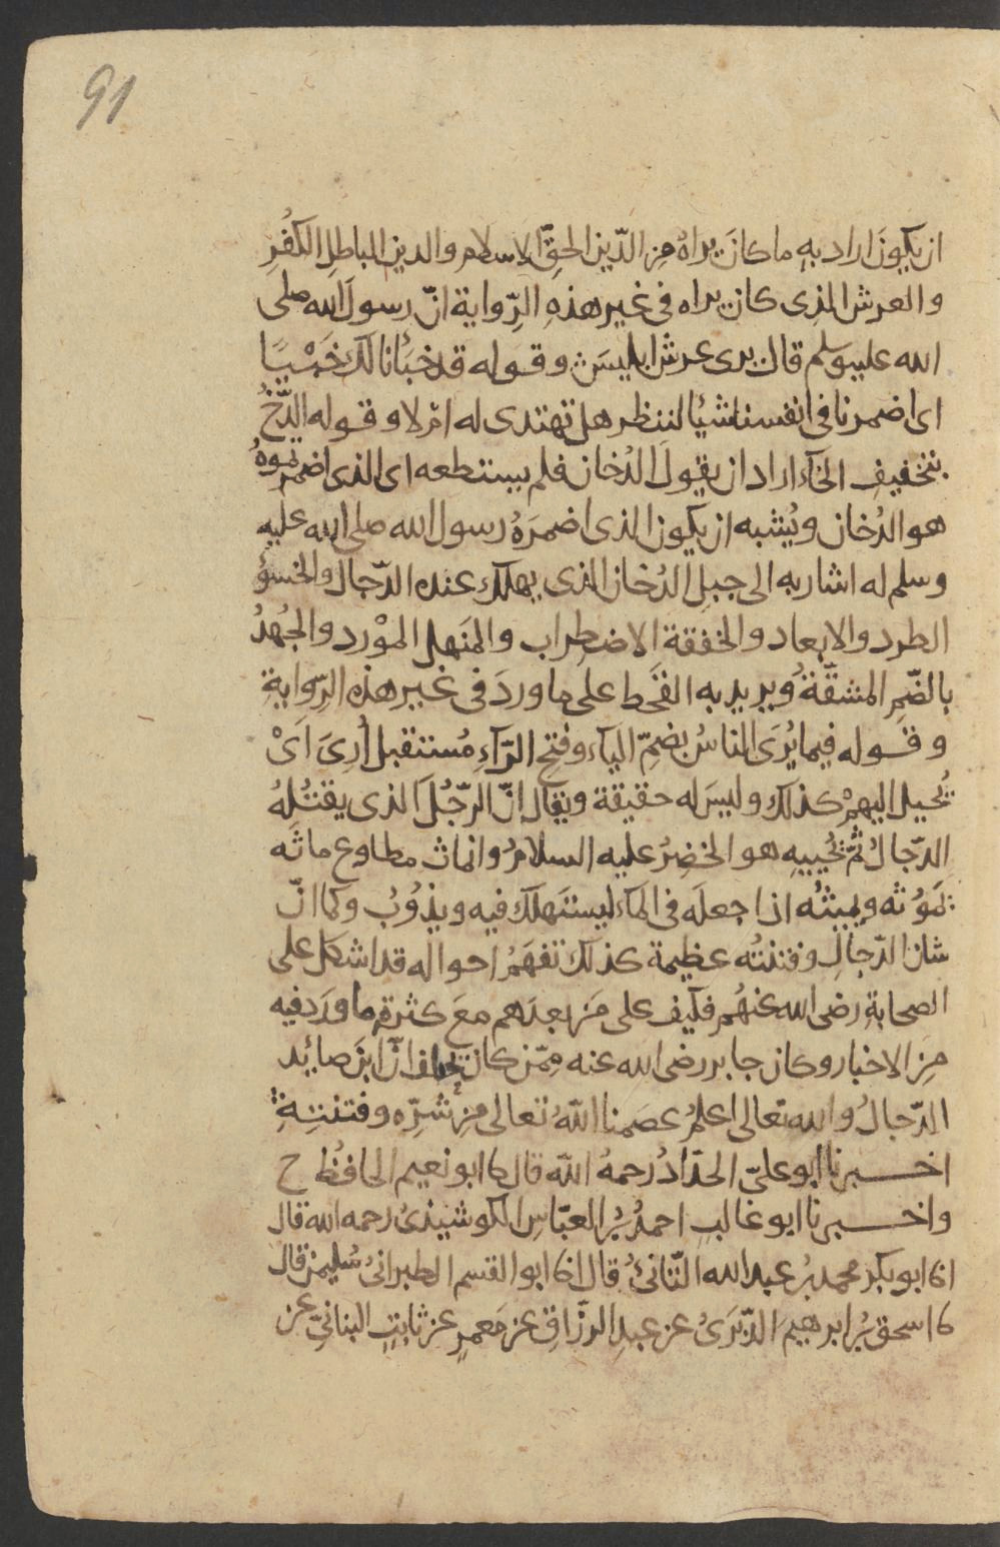 91
ان يكونَ اراد بهِ ما كانَ يراهُ مِن الدّين الحقّ الاسلام والدين الباطل الكفُرِ
والعرش الذى كان يراه فى غير هذهِ الرِّواية انّ رسولَ الله صلى
الله عليه وسلم قال يرى عرش ابليسَ وقوله قد خبَأنا لك خَبْيًا
اى اضمرنا فى انفسنا شيئا لننظر هل تهتدى له ام لا وقوله الدّخُ
بتخفيفِ الخآء اراد ان يقولَ الدُخان فلم يستطعه اى الذى اضمرتموهُ
هو الدُخان ويُشبه ان يكون الذى اضمرَهُ رسول الله صلى الله عليهِ
وسلم له اشار به الى جبلِ الدُخان الذى يهلك عنده الدّجال والخسؤُ
الطرد والابعاد والخفقة الاضطراب والمنهل الموْرد والجُهدُ
بالضّمِ المشقّة ويريد به القَحط على ما وردَ فى غير هذه الرّوايةِ
وقوله فيما يُرَى الناسُ بضمِّ اليآء وفتحِ الرّآءِ مُستقبل أُرِىَ اَىْ
يُخيل اليهمْ كذلك وليسَ له حقيقة ويقال انّ الرّجُلَ الذى يقتُلهُ
الدّجالُ ثمّ يُحييهِ هو الخضِرُ عليه السلامُ وانماث مطاوع ماثَه
يَمُوثه ويميثُه اذا جعلَه فى الماء ليستَهلك فيه ويذُوْبُ وكما انّ
شان الدّجالِ وفتنتُه عظيمة كذلك تفهَمُ احواله قد اشكل على
الصحابةِ رضى الله عنهُم فكيف على مَن بعدَهم معَ كثرةِ ما ورَدَ فيه
مِن الاخبار وكان جابر رضى الله عنه مِمّن كان يحلف انّ ابنَ صائِد
الدّجالُ والله تعالى اعلمُ عصَمنا اللّهُ تعالى مِن شرِّه وفتنتِهِ
اخبرنا ابو علىّ الحدّادُ رحمهُ اللّه قال نا ابو نعيم الحافظُ ح
واخبرنا ابو غالب احمدُ بنُ العبّاسِ الكوشيذىُ رحمه الله قال
انا ابو بكر محمد بنُ عبد الله التّانىُ قال انا ابو القسم الطبرانىُ سُليمن قال
نا اسحق بنُ ابرهيم الدّبَرَىُ عن عبدِ الرزّاقِ عن مَعمرٍ عن ثابتٍ البنانىّ عن